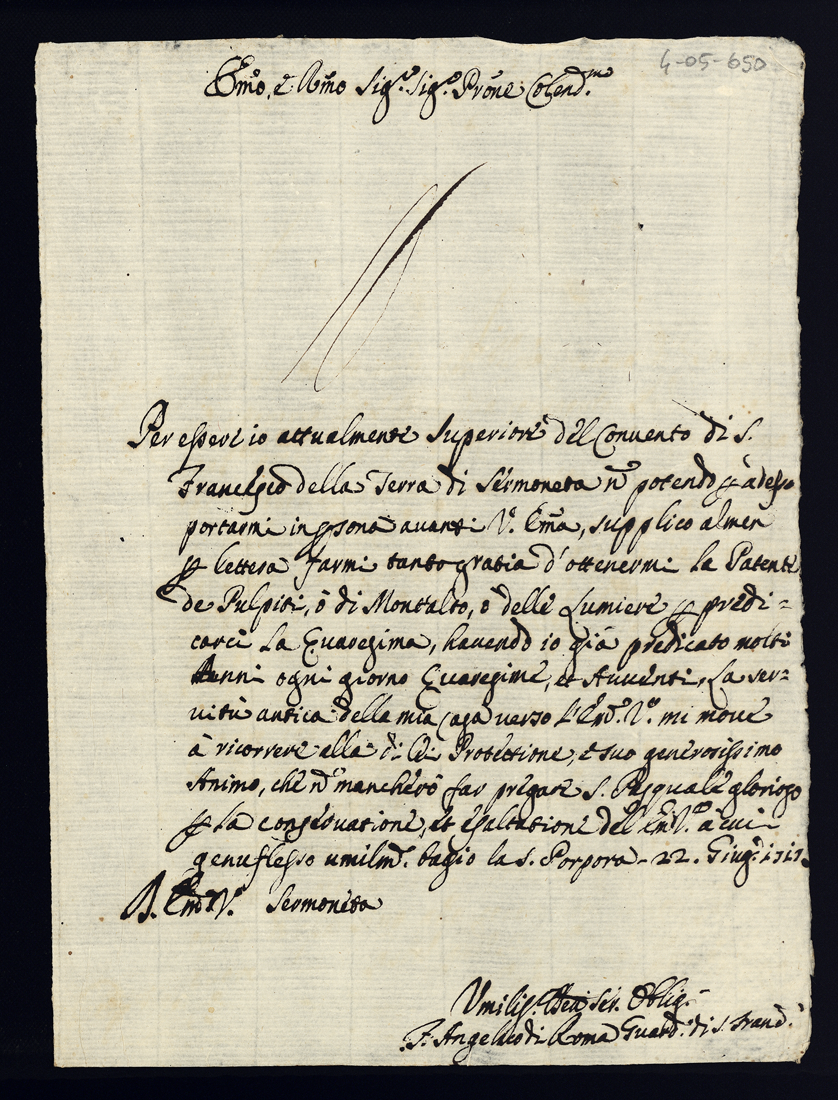 4-05-650
Em̃o, e Rm̃o Sig.r Sig.r Prõne Colend.mo
Per essere io attualmente Superiore del Convento di S.
Francesco della Terra di Sermoneta nõ potendo p adesso
portarmi in psona avanti V.a Em̃a, supplico almen
p lettera farmi tanto gratia d'ottenermi la Patente
de Pulpiti, ò di Montalto, ò delle Lumiere p predi=
carci la Quaresima, havendo io già predicato molti
Anni ogni giorno Quaresime, et Avventi, La ser=
vitù antica della mia Casa verso l'Em̃. V.a mi move
à ricorrere alla di Lei Protettione, e suo generosissimo
Animo, che nõ mancherò far pregare S. Pasquale glorioso
p la conservatione, et esaltatione dell'Em̃.V.a à cui
genuflesso umilm.e bagio la S. Porpora - 22. Giug.o 1717.
D. Em̃.V.a Sermoneta
Umilis. Ser. Oblig.
F. Angelico di Roma Guard. di S. Franc.